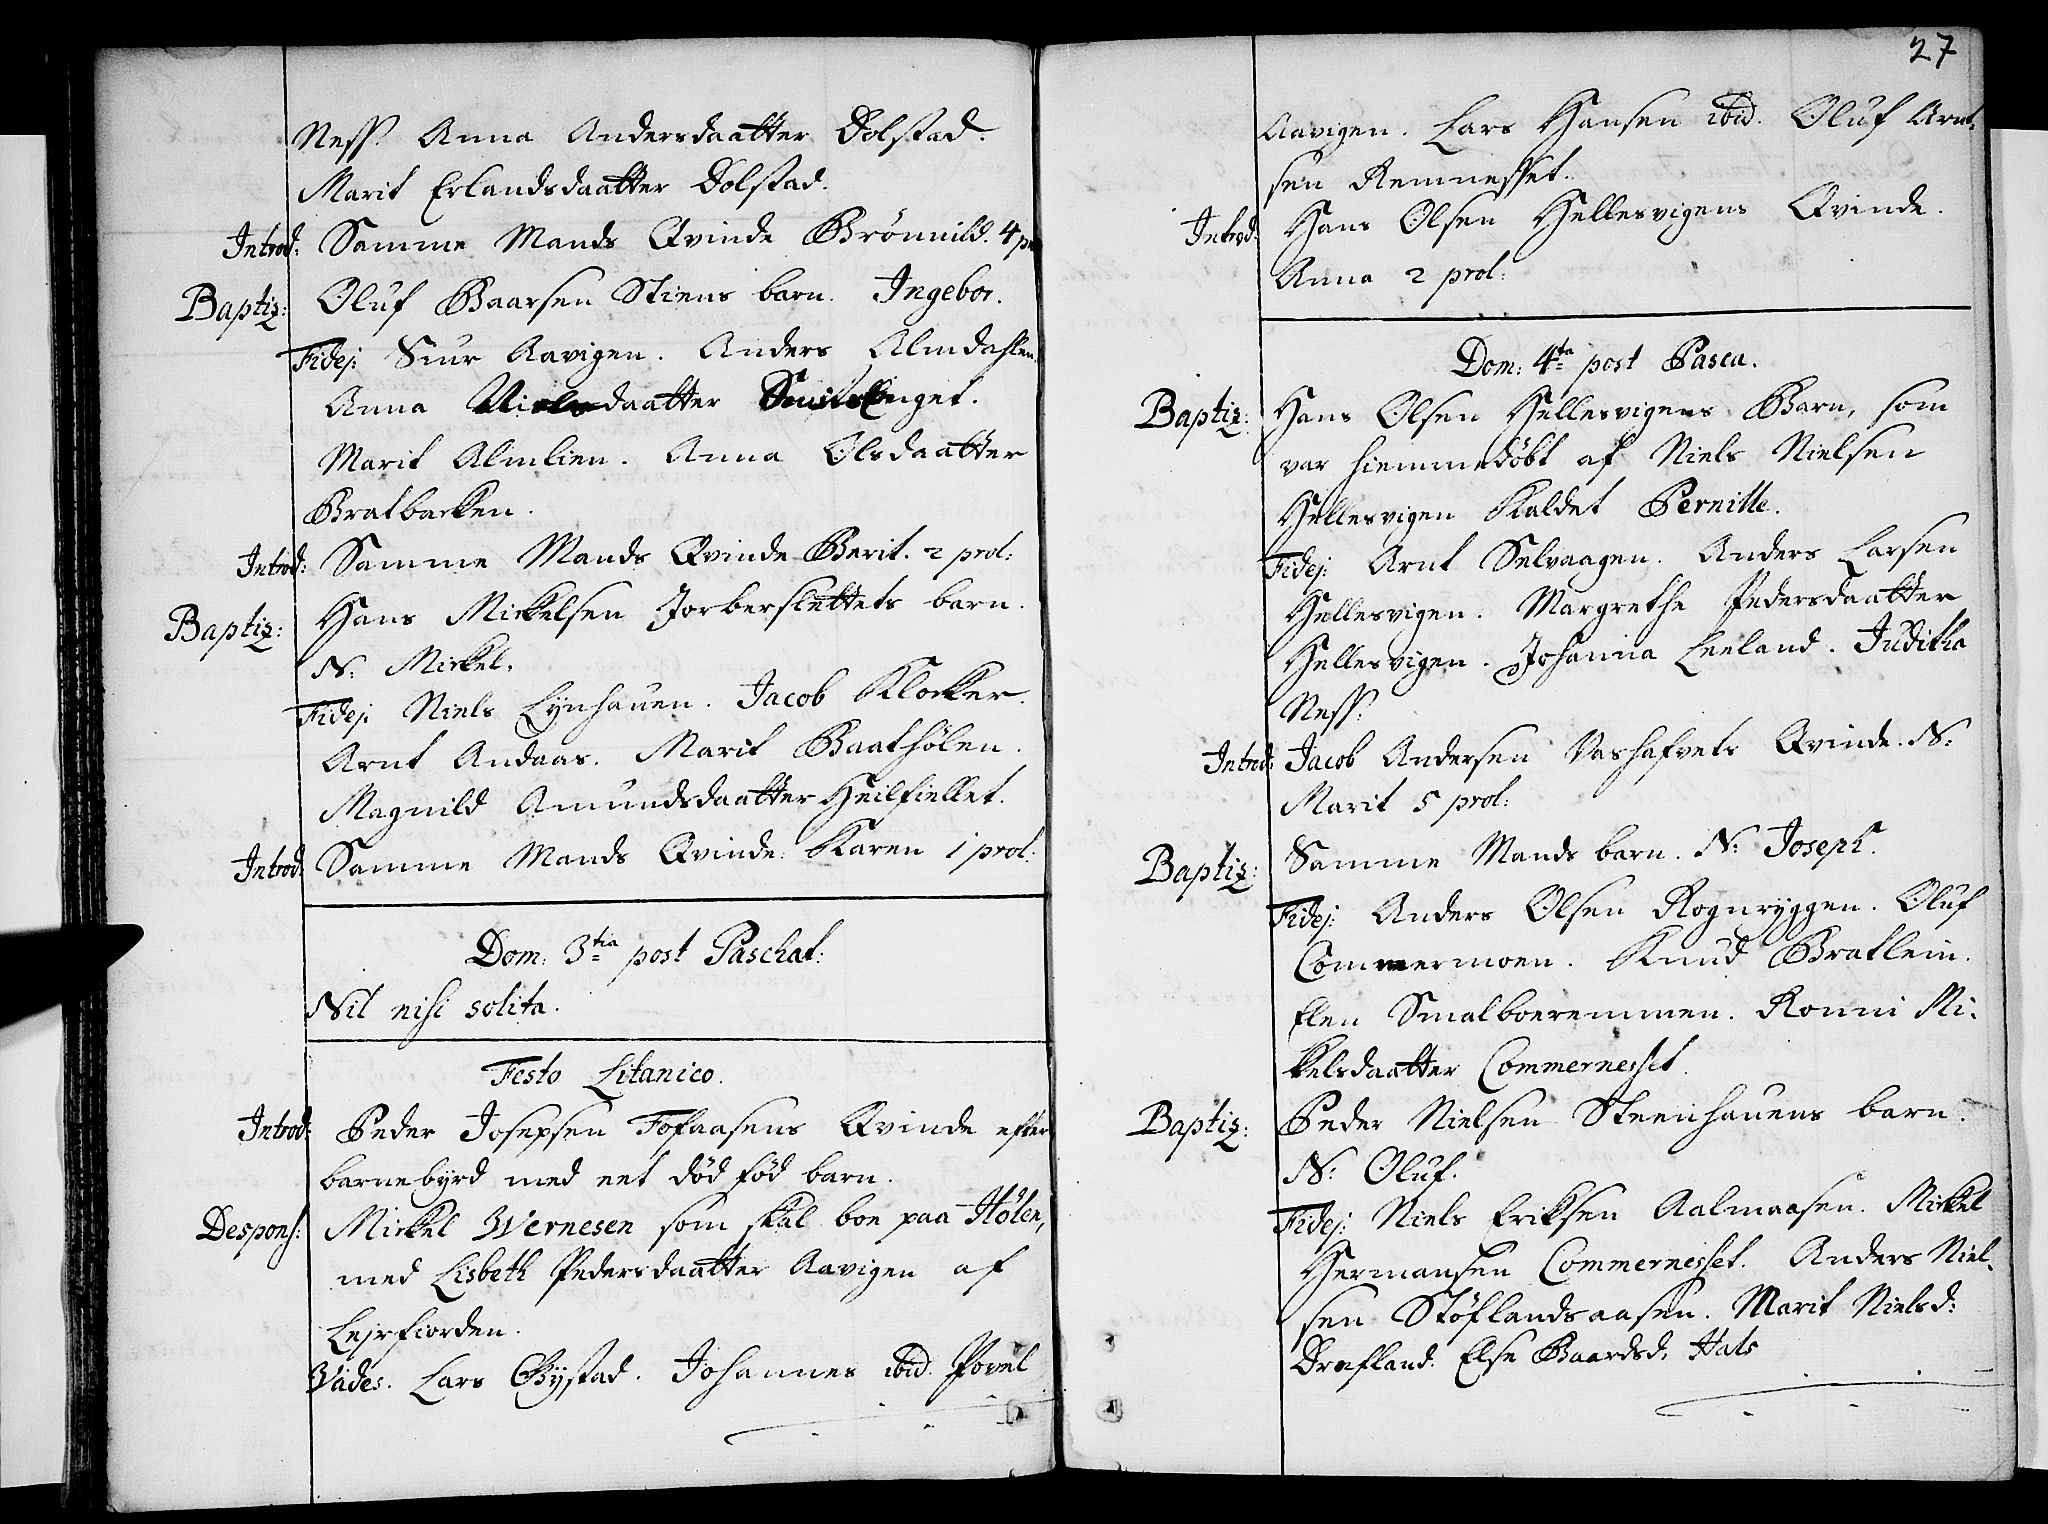 Ness. Anna Andersdaatter Dolstad.
Marit Erlandsdaatter Dolstad.
Introd: Samme Mands Qvinde Brønnild. 4 pr
Baptiz: Oluf Baarsen Stiens barn. Ingebor.
Fidej: Siur Aavigen. Anders Almdahlen.
Anna Nielsdaatter
Marit Almlien. Anna Olsdaatter
Bratbacken.
Introd: Samme Mands Qvinde Berit. 2 prol:
Baptiz: Hans Mickelsen Jorbersslettets barn.
N: Mickel.
Fidej: Niels Lynhauen. Jacob Klocker.
Arnt Andaas. Marit Baathølen.
Magnild Amundsdaatter Heilfiellet.
Introd: Samme Mands Qvinde: Karen 1 prol:
Dom: 3tia post Paschat:
Nil nisi solita.
Festo Litanico.
Introd: Peder Josepsen Tofaasens Qvinde efter
barnebyrd med eet død fød barn.
Despons: Mickel Wernesen som skal boe paa Hølen,
med Lisbeth Pedersdaatter Aavigen af
Lejrfiorden.
Vades. Lars Bystad. Johannes ibid. Povel
27
Aavigen. Lars Hansen ibid. Oluf Arnt-
sen Remnesset.
Introd: Hans Olsen Hellesvigens Qvinde.
Anna 2 prol:
Dom: 4ta post Pasca.
Baptiz: Hans Olsen Hellesvigens Barn, som
var hiemmedøbt af Niels Nielsen
Hellesvigen Kaldet Pernille.
Fidej: Arnt Selvaagen. Anders Larsen
Hellesvigen. Margrethe Pedersdaatter
Hellesvigen. Johanna Leeland. Juditha
Ness.
Introd: Jacob Andersen Vashafvets Qvinde. N:
Marit 5 prol:
Baptiz: Samme Mands barn. N: Joseph.
Fidej: Anders Olsen Rognryggen. Oluf
Commermoen. Knud Bratlein.
Elen Smalboeremmen. Ronni Mi-
kelsdaatter Commernesset.
Baptiz: Peder Nielsen Steenhauens barn.
N: Oluf.
Fidej: Niels Eriksen Aalmaasen. Mickel
Hermansen Commernesset. Anders Niel-
sen Støflandsaasen. Marit Nielsd:
Drefland. Else Baardsd: Hals